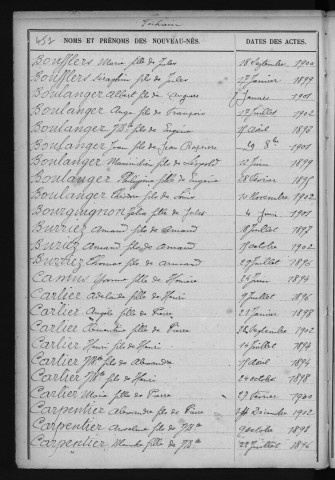 453
NOMS ET PRÉNOMS DES NOUVEAU-NÉS.
DATES DES ACTES.
Boufflers Marie fille de Jules 18 Septembre 1900
Boufflers Seraphin fils de Jules 27 Janvier 1899
Boulanger Albert fils de 7 Janvier 1901
Boulanger Ange fils de François 12 Juillet 1902
Boulanger J Bte fils de Eugène 15 Août 1898
Boulanger Jean fils de Jean 29 8bre 1901
Boulanger Maximilien fils de Léopold 12 Juin 1899
Boulanger Philippine fille de Eugène 28 Février 1895
Boulanger Théodore fils de Louis 10 Novembre 1902
Bourguignon Julia fille de Jules 4 Juin 1901
Burriez Armand fils de Armand 18 Juillet 1897
Buriez Armand fils de Armand 15 Octobre 1902
Burriez Thomas fils de Armand 29 Juillet 1895
Camus Yvonne fille de Honoré 24 Juin 1894
Carlier Adelaïde fille de Henri 9 Juillet 1896
Carlier Angèle fille de Pierre 21 Janvier 1898
Carlier Clémentine fille de Pierre 22 Septembre 1902
Carlier Henri fils de Henri 14 Juillet 1894
Carlier J Bte fils de Alexandre 15 Août 1894
Carlier J Bte fils de Henri 24 Octobre 1898
Carlier Maria fille de Pierre 27 Février 1900
Carpentier Alexandre fils de Pierre 24 Décembre 1902
Carpentier Anselme fils de J Bte 9 Octobre 1898
Carpentier Blanche fille de J Bte 22 Juillet 1896